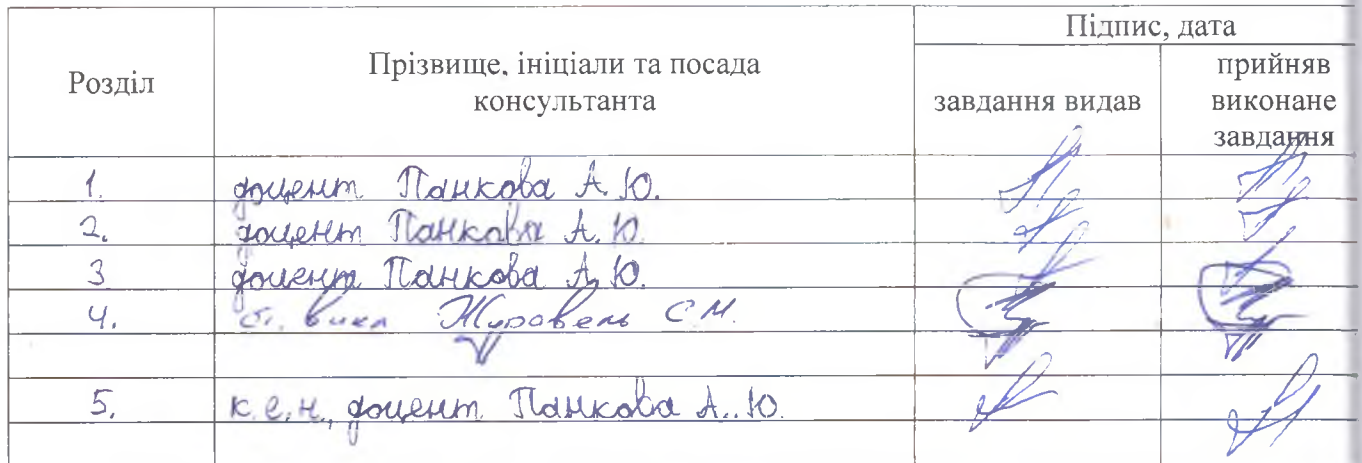 Підпис, дата
Розділ
Прізвище, ініціали та посада
консультанта
завдання видав
прийняв
виконане
завдання
1. доцент Панкова А.Ю.
2. доцент Панкова А.Ю.
3 доцент Панкова А.Ю.
4. ст. викл Журавель С.М.
5. к.е.н., доцент Панкова А.Ю.